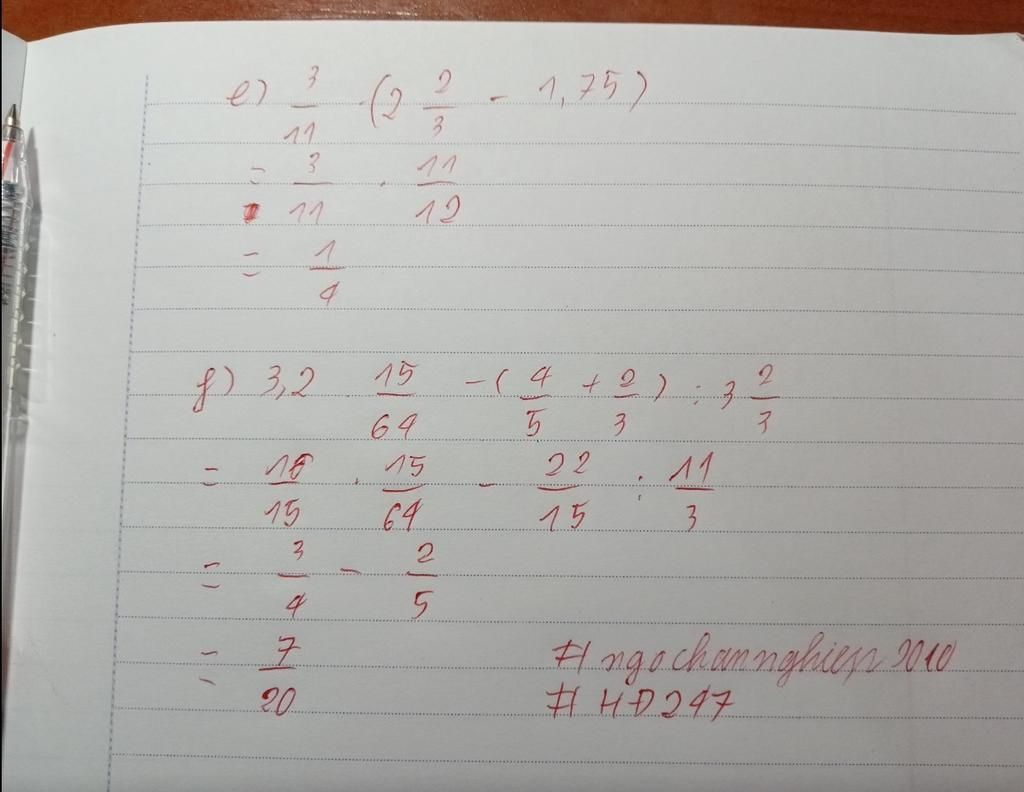 e) 3/11 · (2 2/3 - 1,75)
= 3/11 · 11/12
= 1/4
f) 3,2 · 15/64 - (4/5 + 2/3) : 3 2/3
= 16/15 · 15/64 - 22/15 : 11/3
= 3/4 - 2/5
= 7/20
#ngochannghiep2010
#HD247